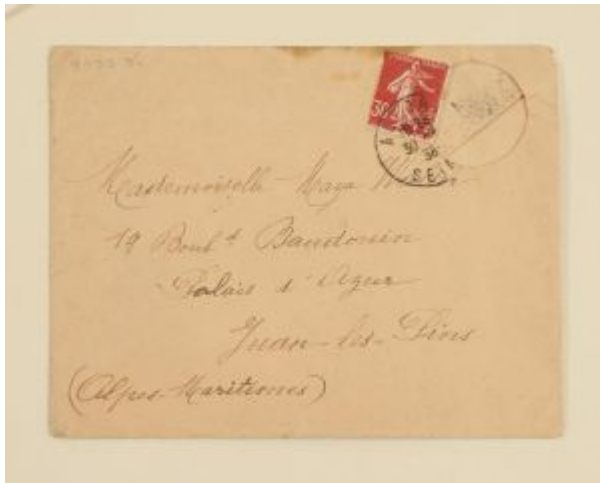 Mademoiselle Maya
19 Boulᵈ Baudouin
Palais d'Azur
Juan-les-Pins
(Alpes-Maritimes)
30
SEINE